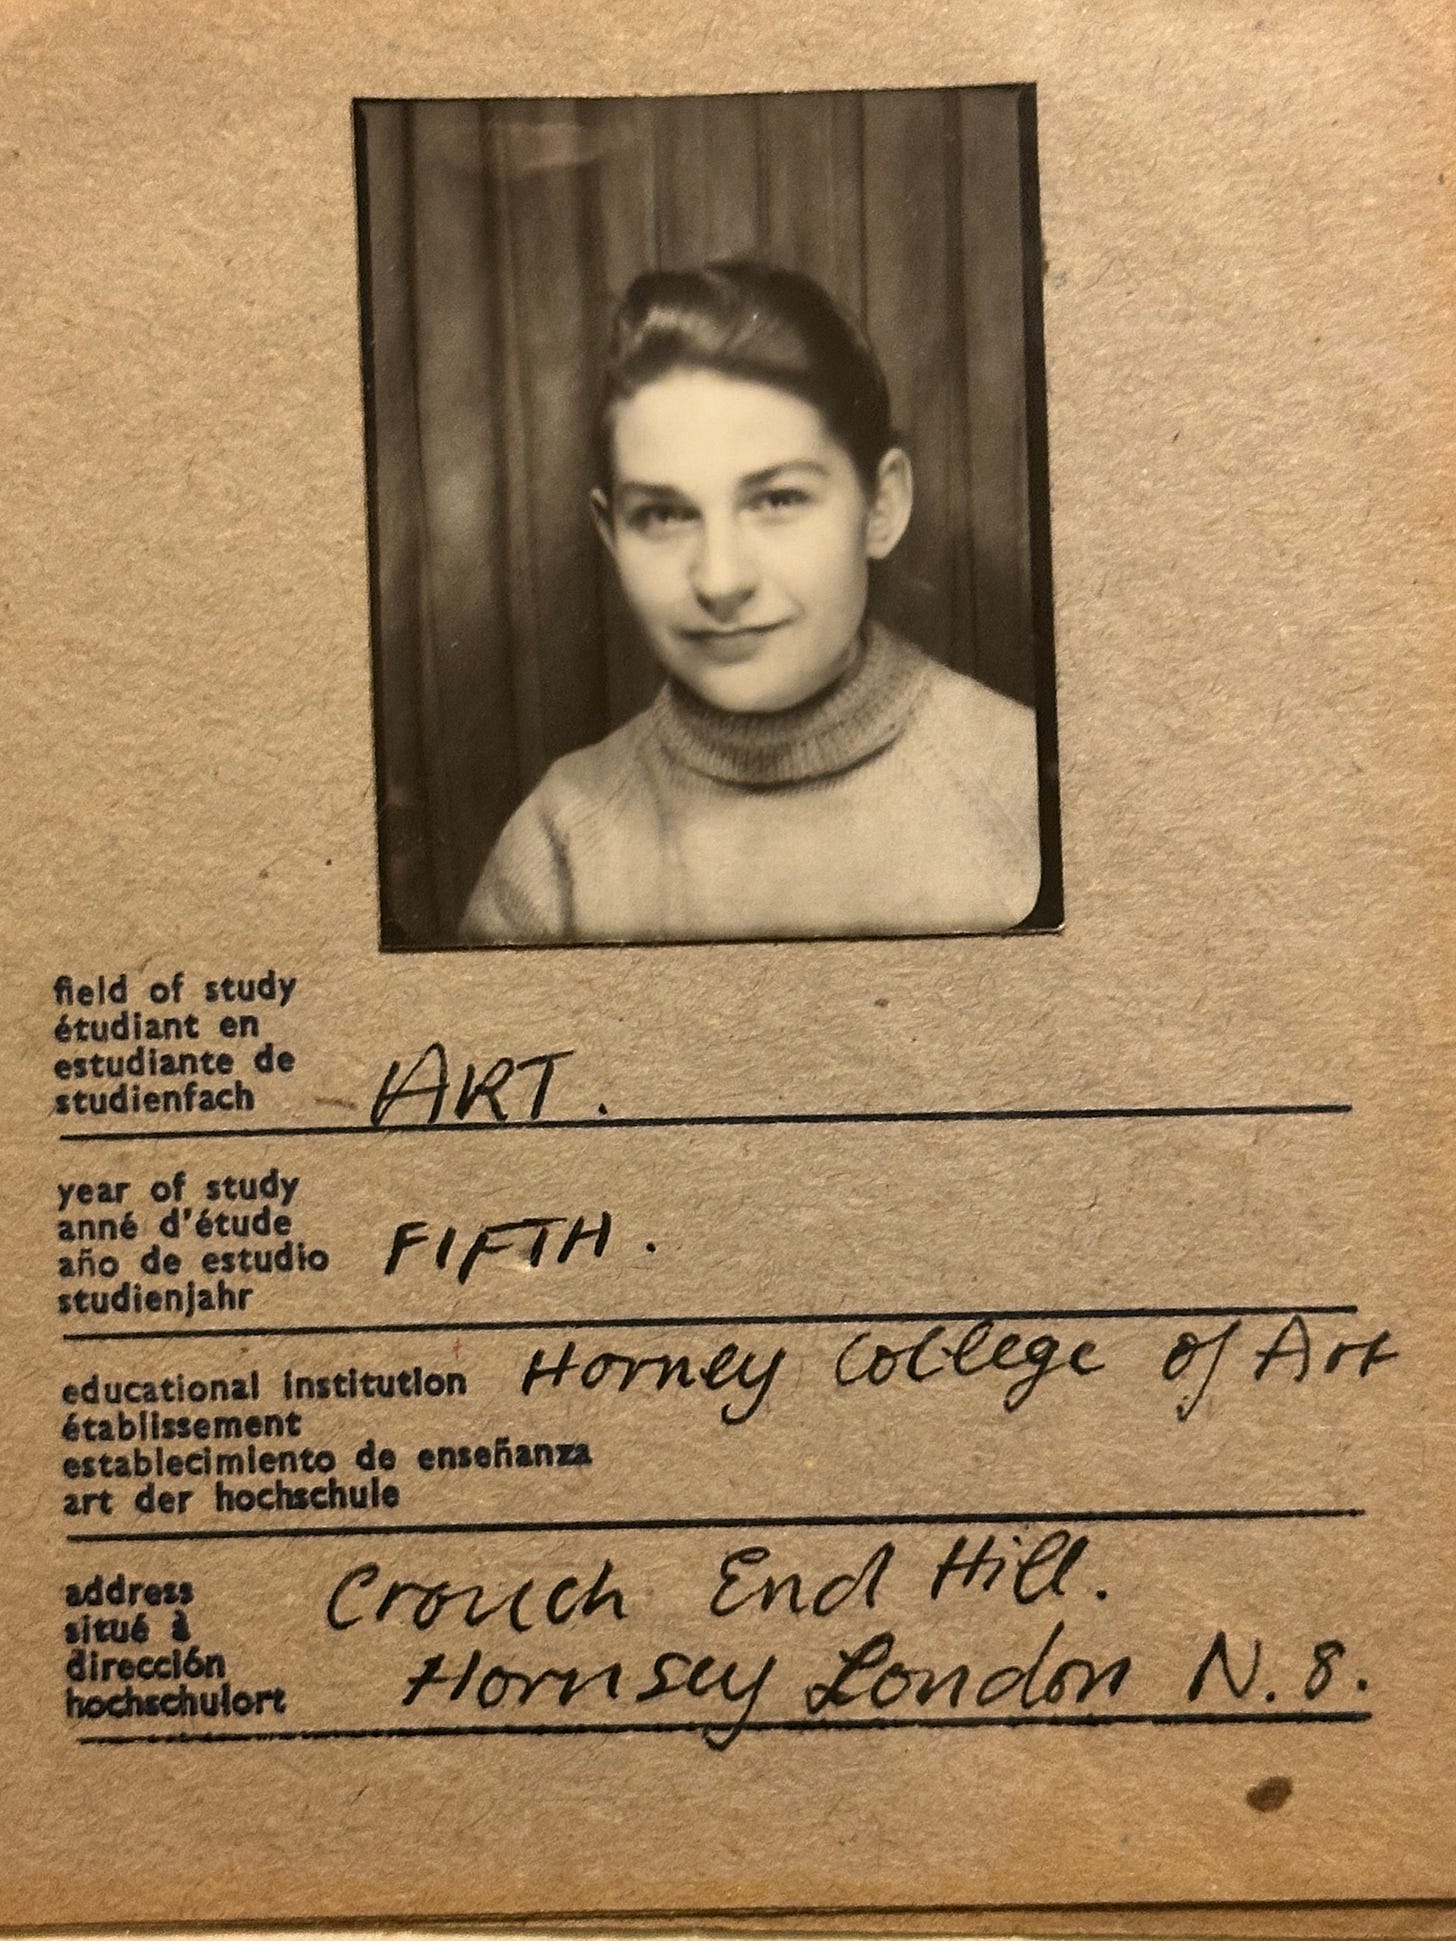 field of study
étudiant en
estudiante de
studienfach ART.
year of study
anné d'étude
año de estudio FIFTH.
studienjahr
educational institution Horney College of Art
établissement
establecimiento de enseñanza
art der hochschule
address Crouch End Hill.
situé à
dirección
hochschulort Hornsey London N.8.